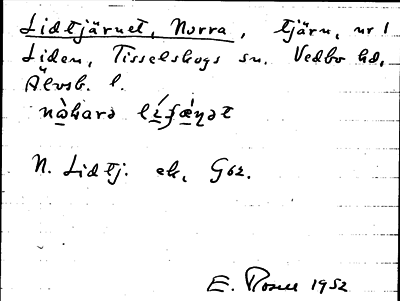 Lidtjärnet, Norra, tjärn, nr 1
Liden, Tisselskogs sn. Vedbo hd,
Älvsb. l.
nàharə
N. Lidtj. ek, G62.
E. Rosell 1952